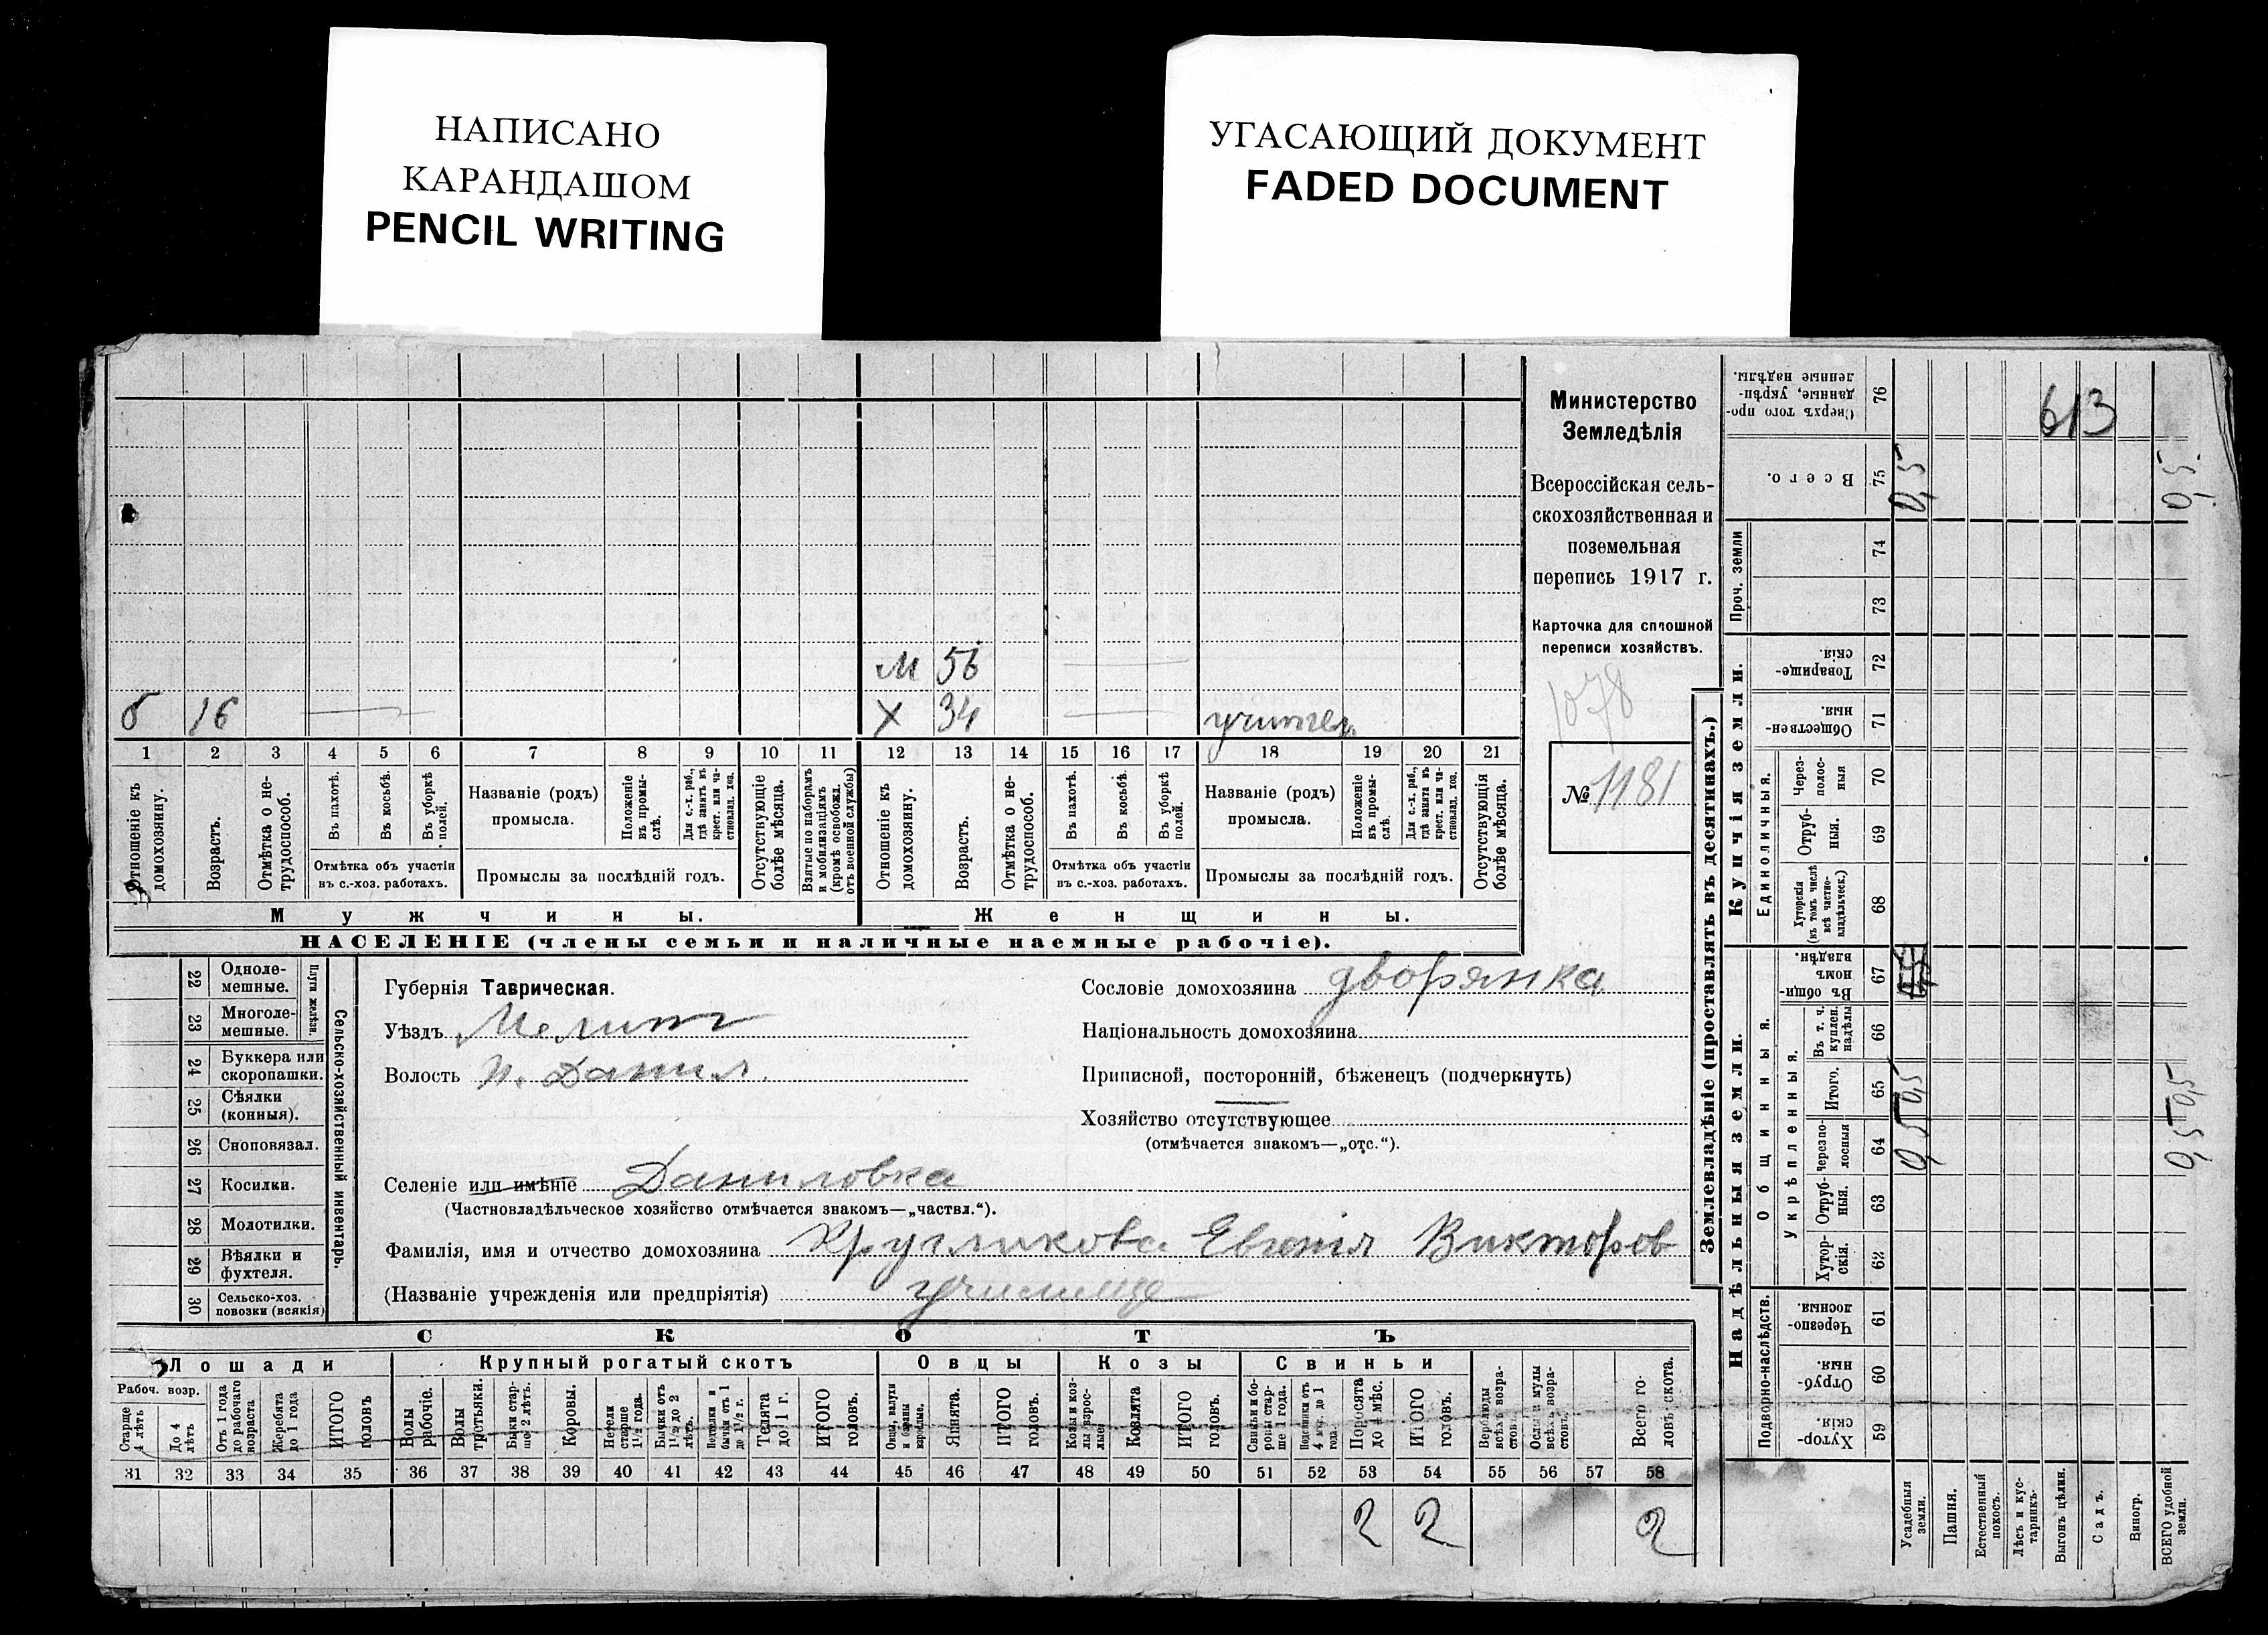 НАПИСАНО
КАРАНДАШОМ
PENCIL WRITING
УГАСАЮЩИЙ ДОКУМЕНТ
FADED DOCUMENT
М 56
б 16
Х 34 учител
1 2 3 4 5 6 7 8 9 10 11 12 13 14 15 16 17 18 19 20 21
Отношеніе къ домохозяину.
Возрастъ.
Отмѣтка о нетрудоспособ.
Въ пахотѣ.
Въ косьбѣ.
Въ уборкѣ полей.
Отмѣтка объ участіи въ с.-хоз. работахъ.
Названіе (родъ) промысла.
Положеніе въ промыслѣ.
Для с.-х. раб., гдѣ занятъ въ крест. или частновлад. хоз.
Промыслы за послѣдній годъ.
Отсутствующіе болѣе мѣсяца.
Взятые по наборамъ и мобилизаціямъ (кромѣ освобожд. отъ военной службы)
Отношеніе къ домохозяину.
Возрастъ.
Отмѣтка о нетрудоспособ.
Въ пахотѣ.
Въ косьбѣ.
Въ уборкѣ полей.
Отмѣтка объ участіи въ с.-хоз. работахъ.
Названіе (родъ) промысла.
Положеніе въ промыслѣ.
Для с.-х. раб., гдѣ занята въ крест. или частновлад. хоз.
Промыслы за послѣдній годъ.
Отсутствующія болѣе мѣсяца.
Мужчины.
Женщины.
НАСЕЛЕНІЕ (члены семьи и наличные наемные рабочіе).
Министерство
Земледѣлія
Всероссійская сель-
скохозяйственная и
поземельная
перепись 1917 г.
Карточка для сплошной
переписи хозяйствъ.
1078
№ 1181
22 Однолемешные.
23 Многолемешные.
Плуги желѣзн.
24 Буккера или скоропашки.
25 Сѣялки (конныя).
26 Сноповязал.
27 Косилки.
28 Молотилки.
29 Вѣялки и фухтеля.
30 Сельско-хоз. повозки (всякія)
Сельско-хозяйственный инвентарь.
Губернія Таврическая.
Уѣздъ Мелит
Волость Н. Данил.
Сословіе домохозяина дворянка
Національность домохозяина
Приписной, посторонній, бѣженец (подчеркнуть)
Хозяйство отсутствующее
(отмѣчается знакомъ—„отс.“).
Селеніе или имѣніе Даниловка
(Частновладѣльческое хозяйство отмѣчается знакомъ—„частвл.“).
Фамилія, имя и отчество домохозяина Кругликова Евгенія Викторов
(Названіе учрежденія или предпріятія) училище
СКОТЪ
Лошади
Крупный рогатый скотъ
Овцы
Козы
Свиньи
Рабоч. возр.
Старше 4 лѣтъ
До 4 лѣтъ
Отъ 1 года до рабочаго возраста
Жеребята до 1 года
ИТОГО головъ
Волы рабочіе.
Волы третьяки.
Быки старше 2 лѣтъ.
Коровы.
Нетели старше 1 1/2 года.
Бычки отъ 1 1/2 до 2 лѣтъ.
Телки и бычки отъ 1 до 1 1/2 г.
Телята до 1 г.
ИТОГО головъ.
Овцы, валухи и бараны взрослые.
Ягнята.
ИТОГО головъ.
Козы и козлы взрослые
Козлята
ИТОГО головъ.
Свиньи и боровы старше 1 года.
Подсвинки отъ 4 мѣс. до 1 года
Поросята до 4 мѣс.
ИТОГО головъ.
Верблюды всѣхъ возрастов.
Ослы и мулы всѣхъ возрастовъ.
Всего головъ скота.
31 32 33 34 35 36 37 38 39 40 41 42 43 44 45 46 47 48 49 50 51 52 53 54 55 56 57 58
2 2 2
Землевладѣніе (проставлять въ десятинахъ.)
Надѣльныя земли.
Купчія земли.
Проч. земли
Подворно-наслѣдств.
Общинныя.
Укрѣпленныя.
Единоличныя.
Хуторскія 59
Отрубныя. 60
Черезполосныя. 61
Хуторскія. 62
Отрубныя. 63
Черезполосныя 64
Итого. 65
Въ т. ч. куплен. надѣлы 66
Въ общинномъ владѣн. 67
Хуторскія (въ томъ числѣ всѣ частновладѣльческ.) 68
Отрубныя. 69
Черезполосныя 70
Общественныя. 71
Товарищескія. 72
73
74
Всего. 75
Сверхъ того проданные, укрѣпленные надѣлы. 76
613
0,5
0,5
0,5
0,5
Усадебныя земли.
Пашня.
Естественный покосъ.
Лѣсъ и кустарникъ.
Выгонъ цѣлин.
Садъ.
Виногр.
ВСЕГО удобной земли.